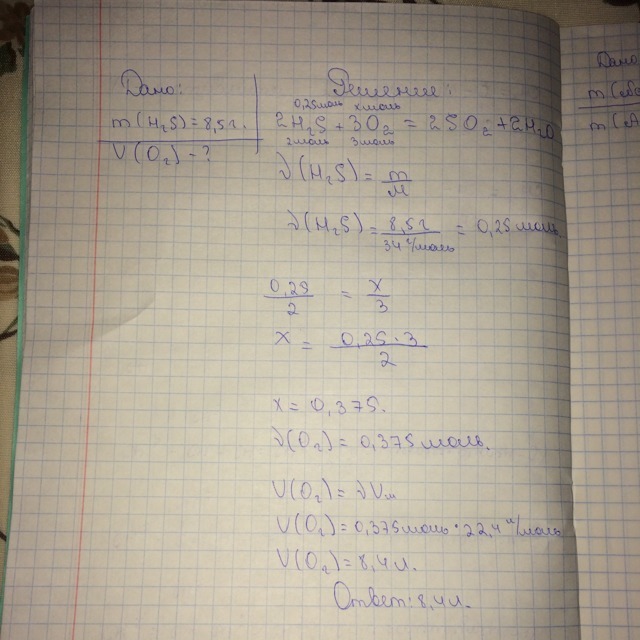 Дано:
m(H₂S)=8,5г.
V(O₂)-?
Решение:
0,25моль xмоль
2H₂S + 3O₂ = 2SO₂ + 2H₂O
2моль 3моль
ν(H₂S) = m/M
ν(H₂S) = 8,5г/34г/моль = 0,25моль.
0,25/2 = x/3
x = 0,25·3/2
x = 0,375.
ν(O₂) = 0,375моль.
V(O₂) = νVм
V(O₂) = 0,375моль·22,4л/моль
V(O₂) = 8,4л.
Ответ: 8,4л.
Дано
m(
m(A